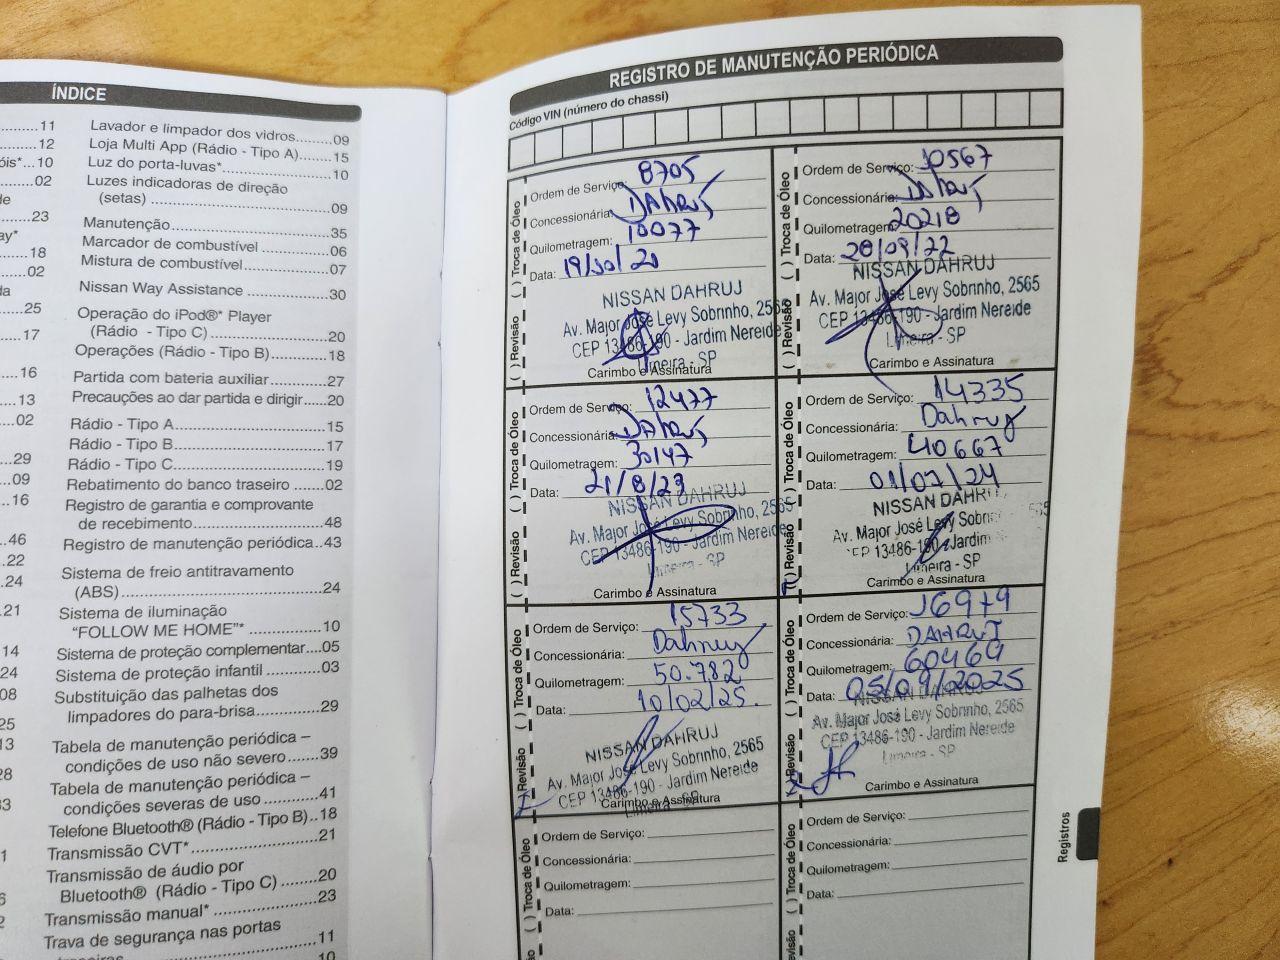 ÍNDICE
...........11
...........12
óis*...10
............02
de
............23
way*
.........18
............02
da
.........25
.........17
.........16
.........13
............02
.........29
.........09
.........16
.........46
.........22
.........24
.........21
.........14
.........24
.........08
.........25
.........13
.........28
.........33
Lavador e limpador dos vidros..........09
Loja Multi App (Rádio - Tipo A).......15
Luz do porta-luvas*.......................10
Luzes indicadoras de direção
(setas) ...................................09
Manutenção.................................35
Marcador de combustível ...............06
Mistura de combustível..................07
Nissan Way Assistance .................30
Operação do iPod®* Player
(Rádio - Tipo C) ........................20
Operações (Rádio - Tipo B)............18
Partida com bateria auxiliar............27
Precauções ao dar partida e dirigir.....20
Rádio - Tipo A..............................15
Rádio - Tipo B..............................17
Rádio - Tipo C..............................19
Rebatimento do banco traseiro .......02
Registro de garantia e comprovante
de recebimento..........................48
Registro de manutenção periódica..43
Sistema de freio antitravamento
(ABS) .....................................24
Sistema de iluminação
“FOLLOW ME HOME”* ................10
Sistema de proteção complementar....05
Sistema de proteção infantil ...........03
Substituição das palhetas dos
limpadores do para-brisa..............29
Tabela de manutenção periódica –
condições de uso não severo........39
Tabela de manutenção periódica –
condições severas de uso ............41
Telefone Bluetooth® (Rádio - Tipo B)..18
Transmissão CVT*........................21
Transmissão de áudio por
Bluetooth® (Rádio - Tipo C) ........20
Transmissão manual* ...................23
Trava de segurança nas portas
...............................11
REGISTRO DE MANUTENÇÃO PERIÓDICA
Código VIN (número do chassi)
( ) Revisão ( ) Troca de Óleo
Ordem de Serviço: 8705
Concessionária: DAhRuj
Quilometragem: 10077
Data: 19/10/20
NISSAN DAHRUJ
Av. Major José Levy Sobrinho, 2565
CEP 13486-190 - Jardim Nereide
Limeira - SP
Carimbo e Assinatura
( ) Revisão ( ) Troca de Óleo
Ordem de Serviço: 10567
Concessionária: DAhRuj
Quilometragem: 20218
Data: 28/09/22
NISSAN DAHRUJ
Av. Major José Levy Sobrinho, 2565
CEP 13486-190 - Jardim Nereide
Limeira - SP
Carimbo e Assinatura
( ) Revisão ( ) Troca de Óleo
Ordem de Serviço: 12477
Concessionária: DAhRuj
Quilometragem: 30147
Data: 21/8/23
NISSAN DAHRUJ
Av. Major José Levy Sobrinho, 2565
CEP 13486-190 - Jardim Nereide
Limeira - SP
Carimbo e Assinatura
( ) Revisão ( ) Troca de Óleo
Ordem de Serviço: 14335
Concessionária: Dahruj
Quilometragem: 40667
Data: 01/07/24
NISSAN DAHRU
Av. Major José Levy Sobrin
CEP 13486-190 - Jardim
Limeira - SP
Carimbo e Assinatura
Revisão ( ) Troca de Óleo
Ordem de Serviço: 15733
Concessionária: Dahruj
Quilometragem: 50.782
Data: 10/02/25.
NISSAN DAHRUJ
Av. Major José Levy Sobrinho, 2565
CEP 13486-190 - Jardim Nereide
Limeira - SP
Carimbo e Assinatura
Revisão ( ) Troca de Óleo
Ordem de Serviço: 16979
Concessionária: DAHRUJ
Quilometragem: 60469
Data: 05/09/2025
NISSAN DAHRUJ
Av. Major José Levy Sobrinho, 2565
CEP 13486-190 - Jardim Nereide
Limeira - SP
Carimbo e Assinatura
( ) Troca de Óleo
Ordem de Serviço:
Concessionária:
Quilometragem:
Data:
Revisão ( ) Troca de Óleo
Ordem de Serviço:
Concessionária:
Quilometragem:
Data:
Registros